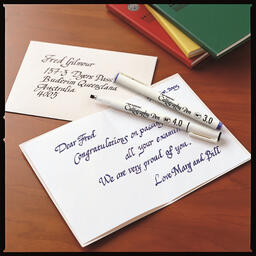 Fred Gilmour
157-3 Dyers Passe
Buderim Queensland
Australia
4005
Calligraphy Pen 3.0
Calligraphy Pen 4.0
Dear Fred
Congratulations on passing
all your exams
We are very proud of you.
Love Mary and Bill